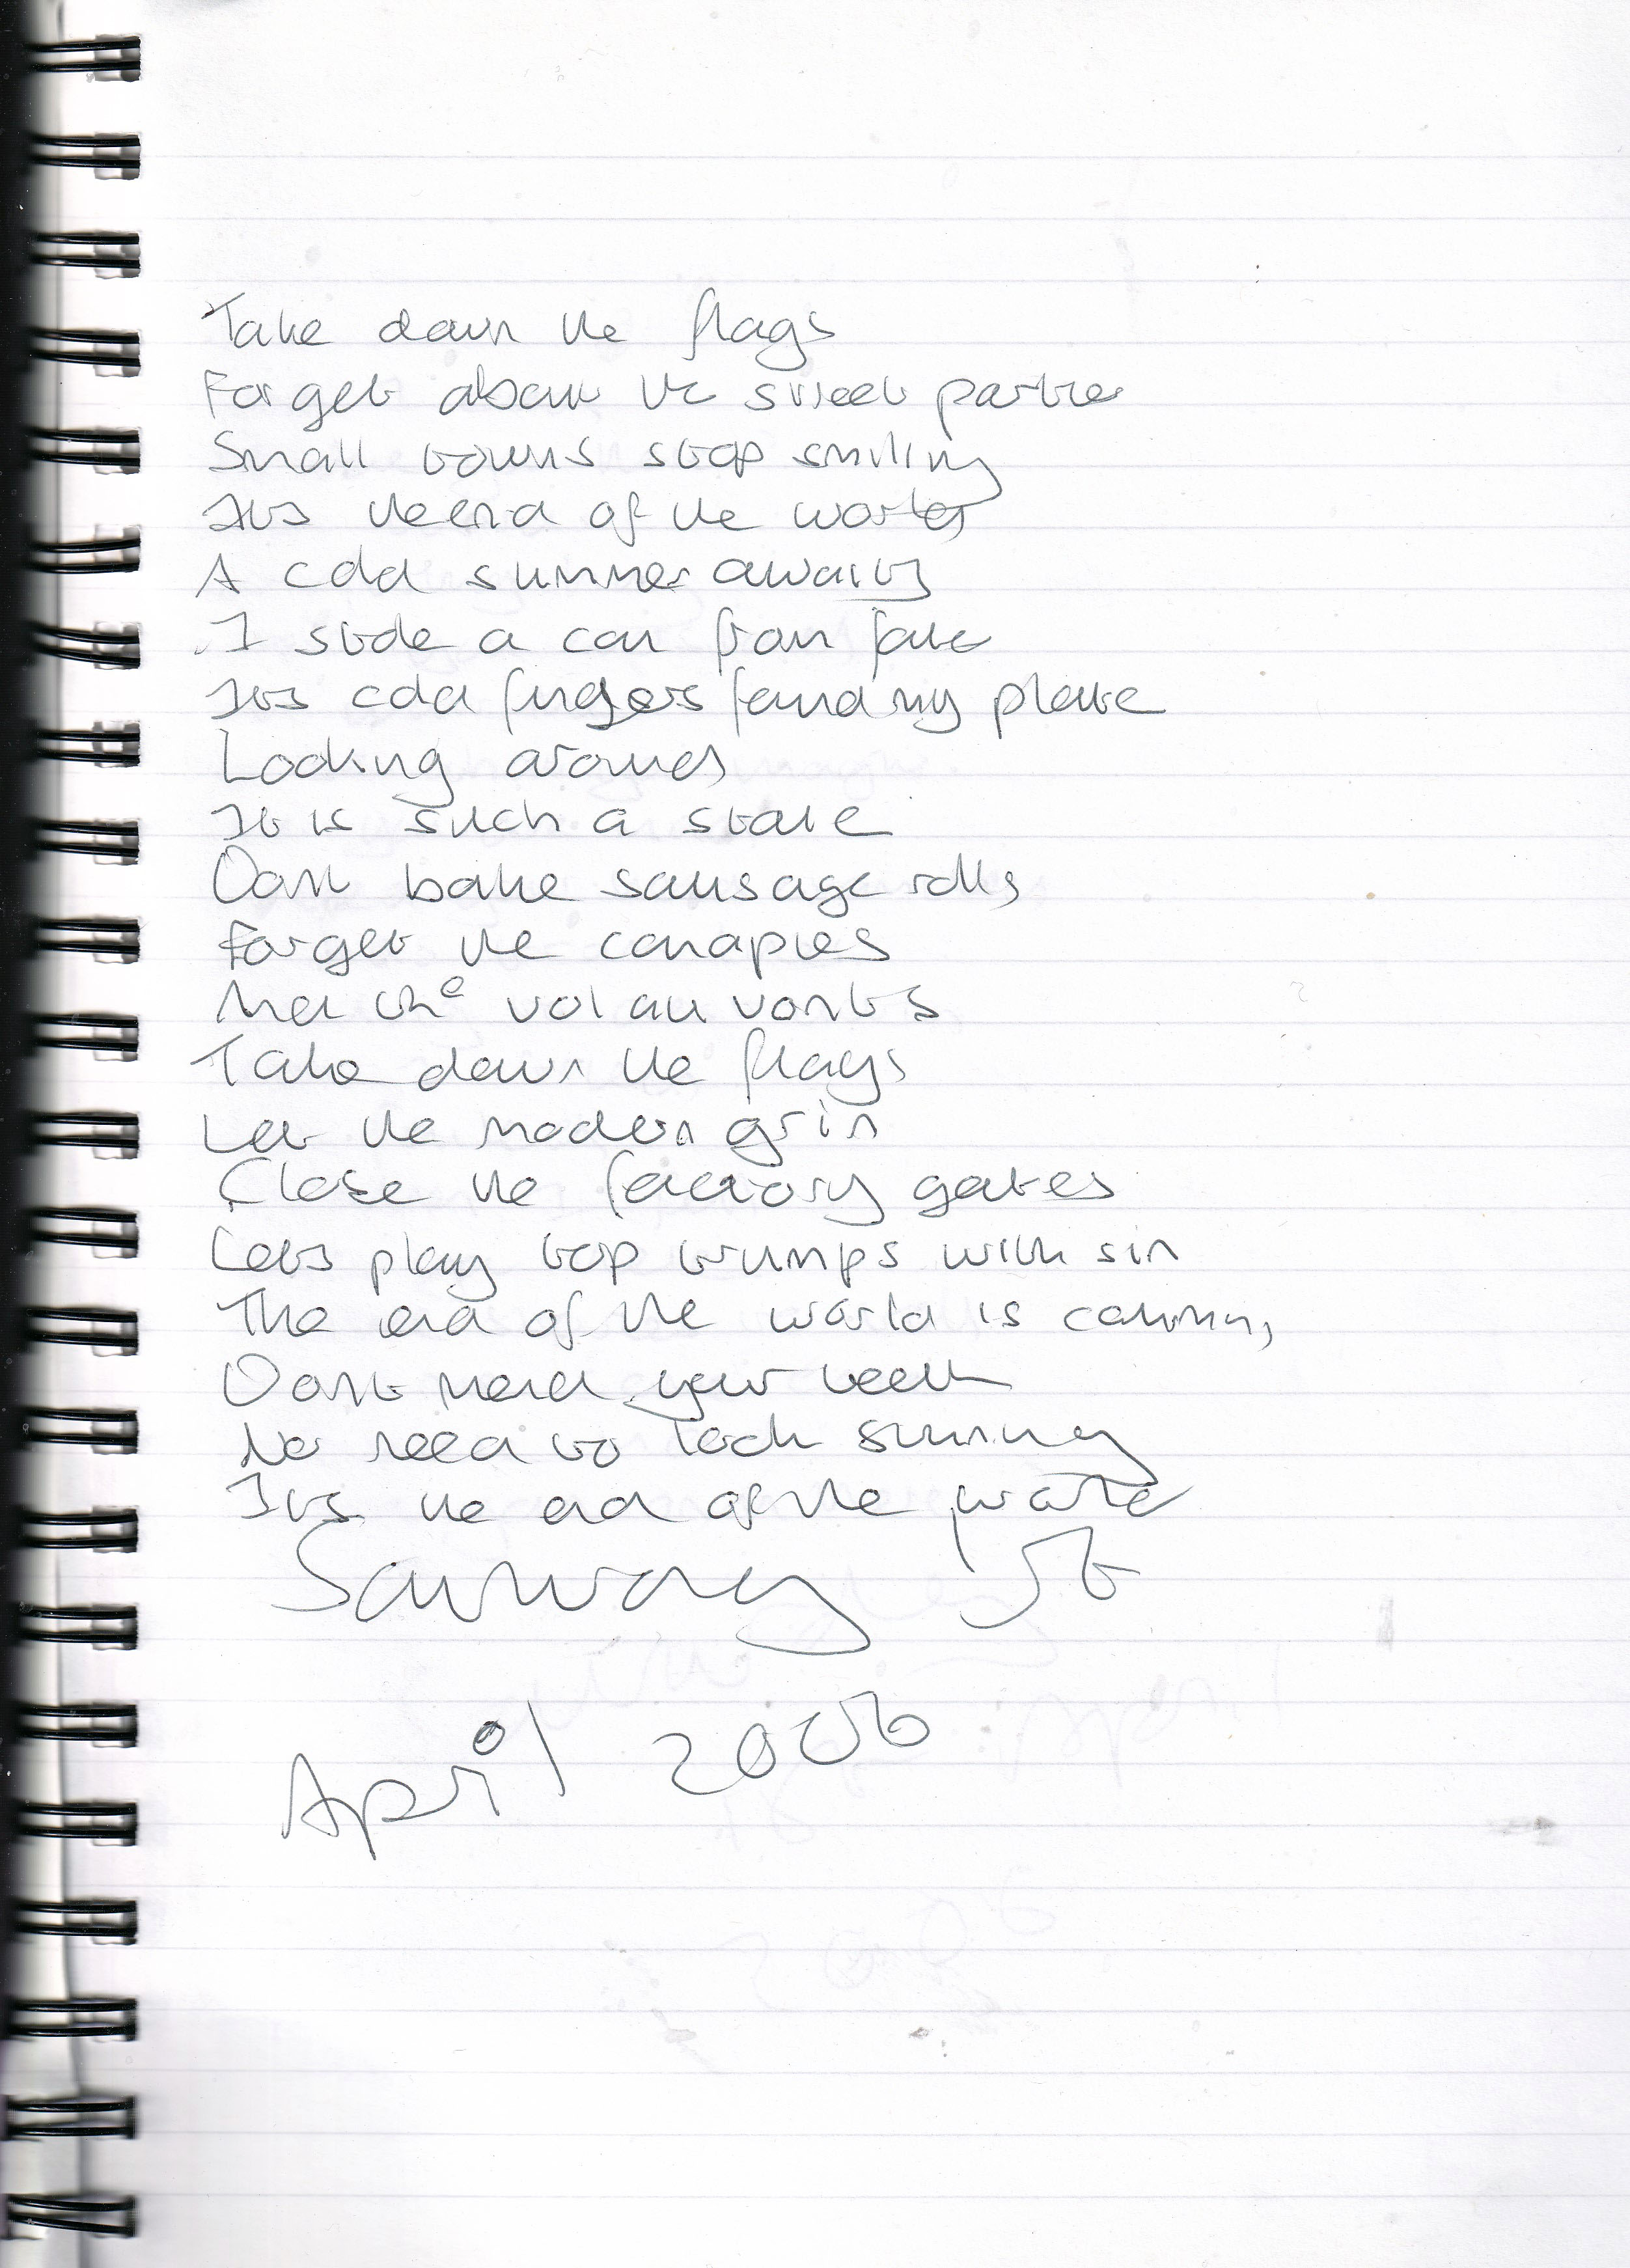 Take down the flags
Forget about the street parties
Small towns stop smiling
Its the end of the world
A cold summer awaits
I stole a car from fate
Its cold fingers found my plate
Looking around
It is such a state
Dont bake sausage rolls
Forget the canapies
And the vol au vonts
Take down the flags
Let the modern grin
Close the factory gates
Lets play top trumps with sin
The end of the world is coming
Dont mend your teeth
No need to look stunning
Its the end of the world
April 2006